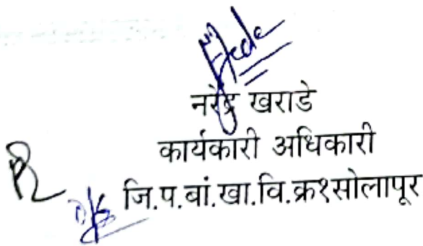 नरेंद्र खराडे
कार्यकारी अधिकारी
जि.प.बां.खा.वि.क्र१सोलापूर